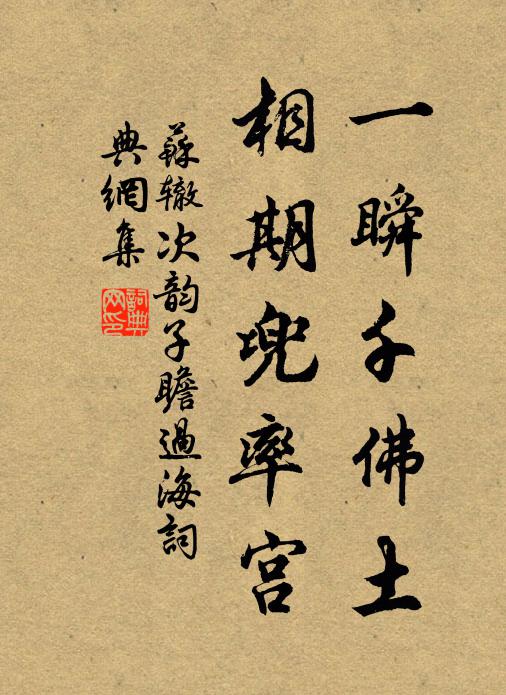 一瞬千佛土
相期兜率宫
蘇辙次韵子瞻過海詞
典網集
詞典网印